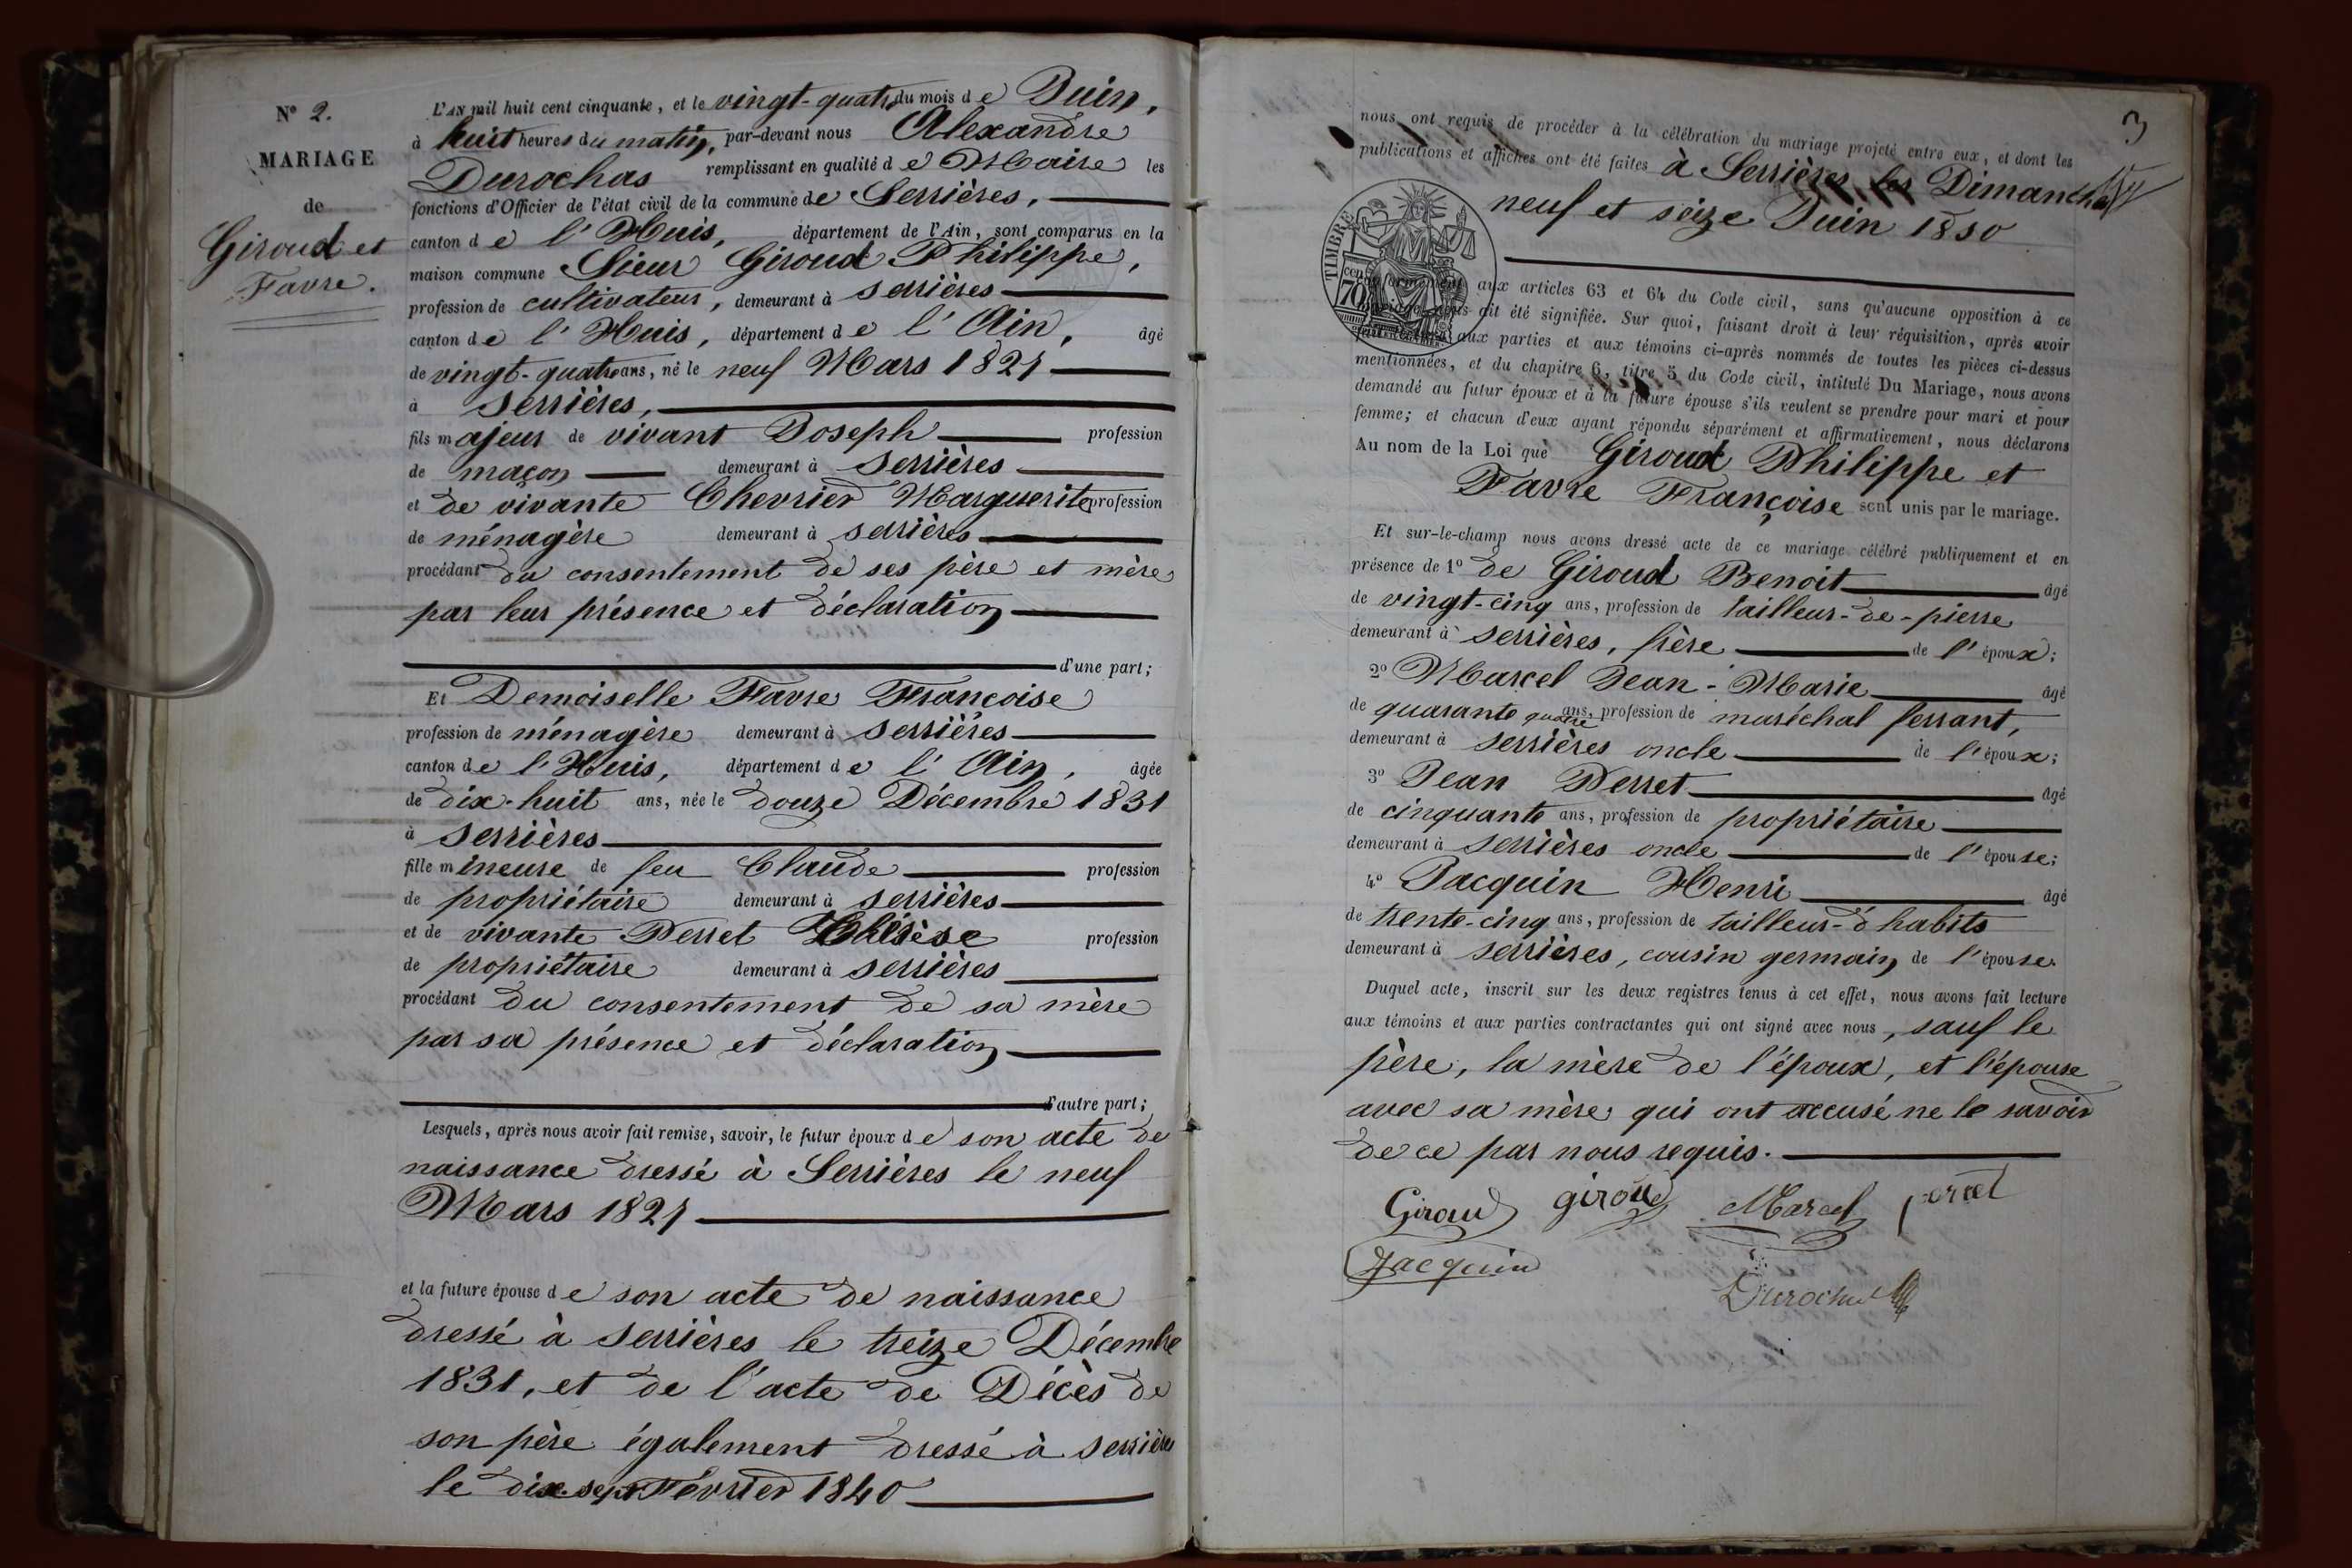 N° 2.
MARIAGE
de
Giroud et
Favre.
L'AN mil huit cent cinquante, et le vingt-quatre du mois de Juin,
à huit heures du matin, par-devant nous Alexandre
Durochas remplissant en qualité de Maire les
fonctions d'Officier de l'état civil de la commune de Serrières,
canton de l'Huis, département de l'Ain, sont comparus en la
maison commune Sieur Giroud Philippe,
profession de cultivateur, demeurant à serrières
canton de l'Huis, département de l'Ain, âgé
de vingt-quatre ans, né le neuf Mars 1821
à serrières,
fils majeur de vivant Joseph profession
de maçon demeurant à serrières
et de vivante Chevrier Marguerite profession
de ménagère demeurant à serrières
procédant du consentement de ses père et mère
par leur présence et déclaration
d'une part;
Et Demoiselle Favre Françoise
profession de ménagère demeurant à serrières
canton de l'Huis, département de l'Ain, âgée
de dix-huit ans, née le douze Décembre 1831
à serrières
fille mineure de feu Claude profession
de propriétaire demeurant à serrières
et de vivante Perret profession
de propriétaire demeurant à serrières
procédant du consentement de sa mère
par sa présence et déclaration
d'autre part;
Lesquels, après nous avoir fait remise, savoir, le futur époux de son acte de
naissance dressé à Serrières le neuf
Mars 1821
et la future épouse de son acte de naissance
dressé à serrières le treize Décembre
1831, et de l'acte de Décès de
son père également dressé à serrières
le dix-sept Février 1840
3
nous ont requis de procéder à la célébration du mariage projeté entre eux, et dont les
publications et affiches ont été faites à Serrières les Dimanches
neuf et seize Juin 1850
TIMBRE
70
conformément aux articles 63 et 64 du Code civil, sans qu'aucune opposition à ce
mariage nous ait été signifiée. Sur quoi, faisant droit à leur réquisition, après avoir
aux parties et aux témoins ci-après nommés de toutes les pièces ci-dessus
mentionnées, et du chapitre 6, titre 5 du Code civil, intitulé Du Mariage, nous avons
demandé au futur époux et à la future épouse s'ils veulent se prendre pour mari et pour
femme; et chacun d'eux ayant répondu séparément et affirmativement, nous déclarons
Au nom de la Loi que Giroud Philippe et
Favre Françoise sont unis par le mariage.
Et sur-le-champ nous avons dressé acte de ce mariage célébré publiquement et en
présence de 1° de Giroud Benoit âgé
de vingt-cinq ans, profession de tailleur-de-pierre
demeurant à serrières, frère de l'époux;
2° Marcel Jean-Marie âgé
de quarante quatre ans, profession de maréchal ferrant,
demeurant à serrières oncle de l'époux;
3° Jean Perret âgé
de cinquante ans, profession de propriétaire
demeurant à serrières oncle de l'épouse;
4° Jacquin Henri âgé
de trente-cinq ans, profession de tailleur-d'habits
demeurant à serrières, cousin germain de l'épouse.
Duquel acte, inscrit sur les deux registres tenus à cet effet, nous avons fait lecture
aux témoins et aux parties contractantes qui ont signé avec nous, sauf le
père, la mère de l'époux, et l'épouse
avec sa mère qui ont accusé ne le savoir
de ce par nous requis.
Giroud giroud Marcel perret
Jacquin
Durochas